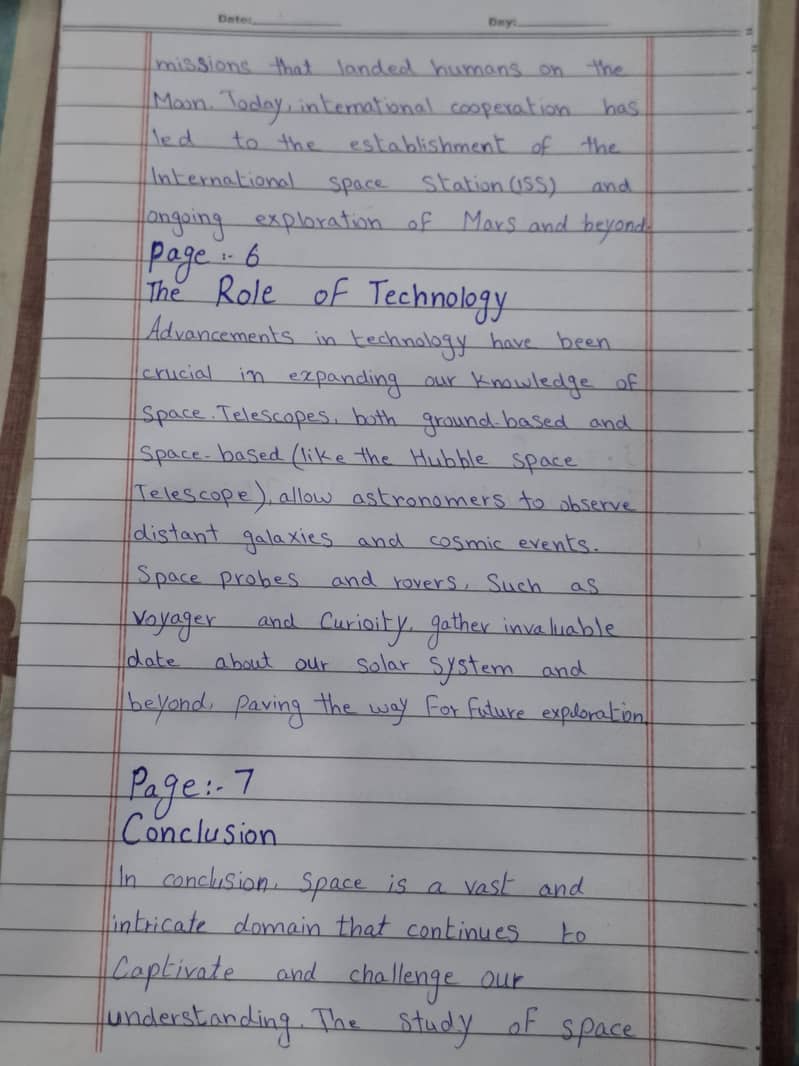 Date: Day:
missions that landed humans on the
Moon. Today, international cooperation has
led to the establishment of the
International Space Station (ISS) and
ongoing exploration of Mars and beyond.
Page :- 6
The Role of Technology
Advancements in technology have been
crucial in expanding our knowledge of
Space. Telescopes, both ground-based and
Space-based (like the Hubble Space
Telescope), allow astronomers to observe
distant galaxies and cosmic events.
Space probes and rovers, Such as
Voyager and Curioity, gather invaluable
date about our solar system and
beyond, paving the way for future exploration.
Page:- 7
Conclusion
In conclusion, Space is a vast and
intricate domain that continues to
Captivate and challenge our
understanding. The study of space